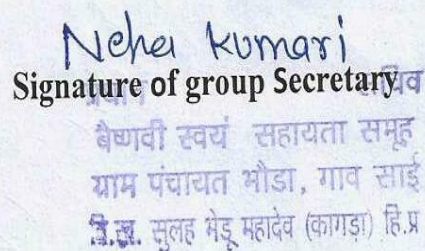 Neha kumari
Signature of group Secretary
प्रधान सचिव
बैष्णवी स्वयं सहायता समूह
ग्राम पंचायत भौडा, गाव साई
वि.ख. सुलह भेडू महादेव (कागडा) हि.प्र